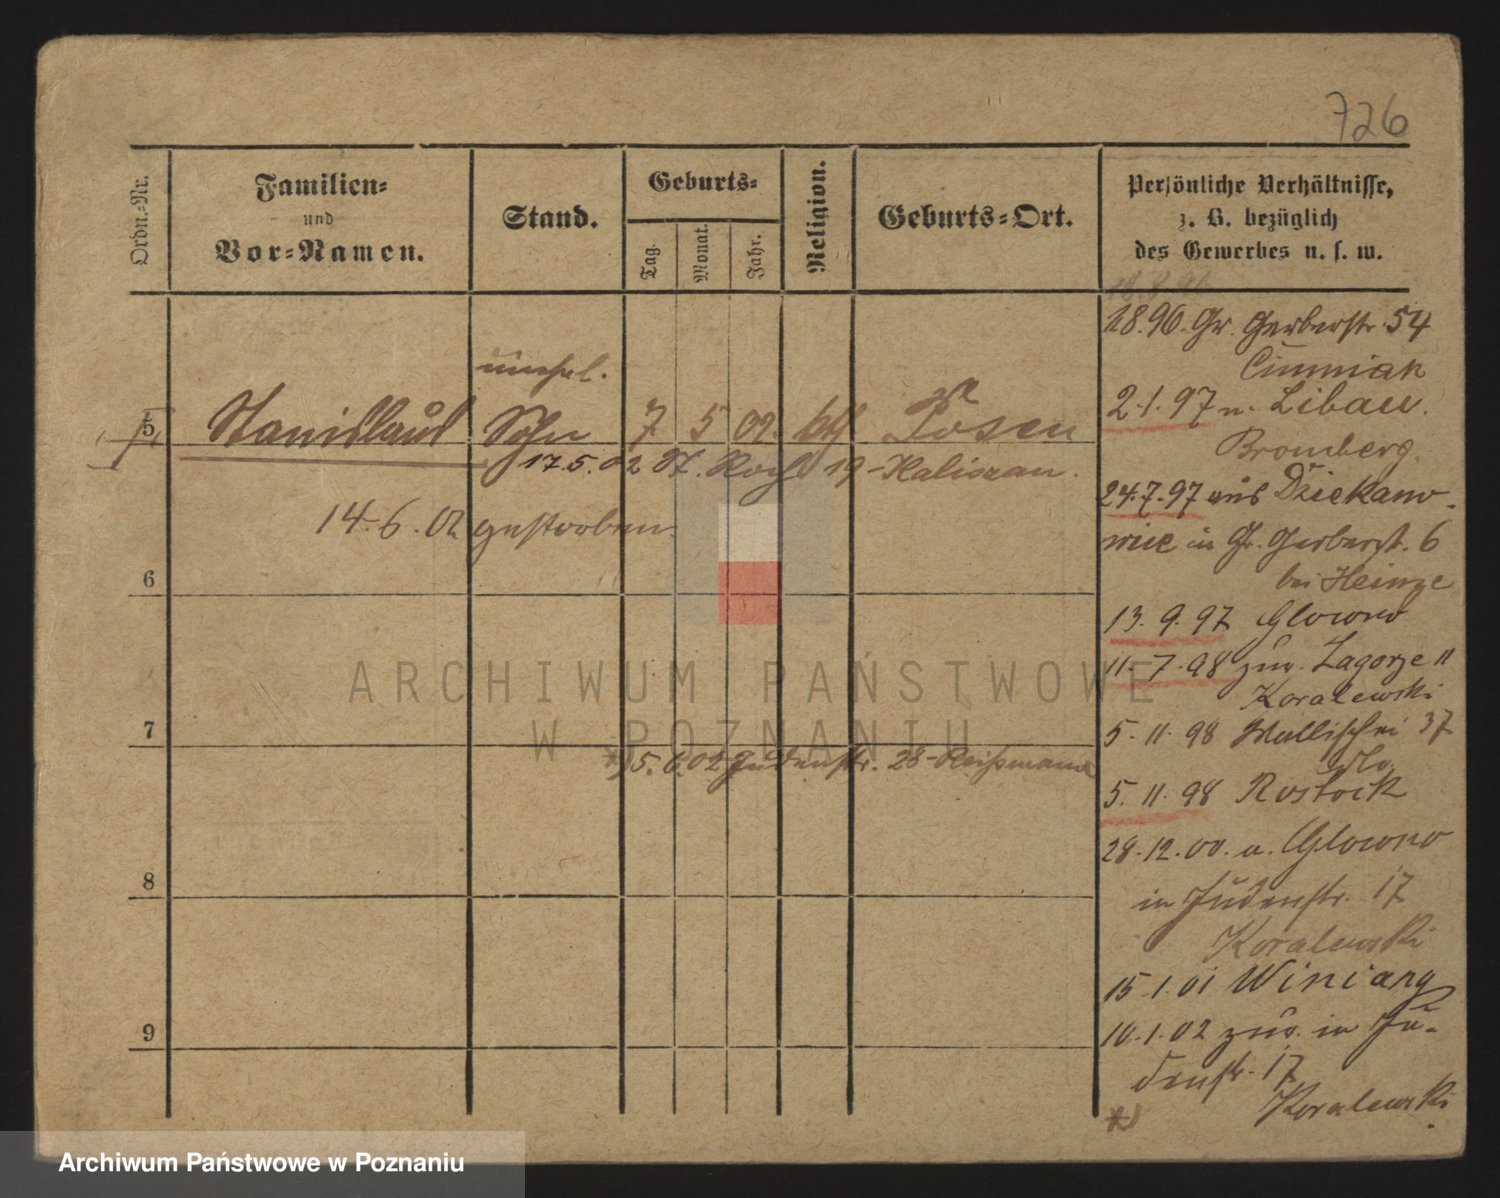 726
Ordn.-Nr.
Familien-
und
Vor-Namen.
Stand.
Geburts-
Tag.
Monat.
Jahr.
Religion.
Geburts-Ort.
Persönliche Verhältnisse,
z. B. bezüglich
des Gewerbes u. s. w.
unehel.
5 Stanislaus Sohn 7 5 02. kth Posen
17.5.02 St. Roch 19 - Kaliszan.
14.6.02 gestorben.
6
7
*) 5.6.02 Judenstr. 28 - Reißmann
8
9
1896. Gr. Gerberstr. 54
Cimniak
2.1.97 n. Libau.
Bromberg.
24.7.97 aus Dziekano-
wice in Gr. Gerberst. 6
bei Heinze
13.9.97 Glowno
11.7.98 zur. Zagorze 11
Koralewski
5.11.98 Wallischei 37
dto
5.11.98 Rostock
28.12.00. a. Glowno
in Judenstr. 17
Koralewski
15.1.01 Winiary
10.1.02 zur. in Ju-
denstr. 17
Koralewski.
*)
ARCHIWUM PAŃSTWOWE
W POZNANIU
Archiwum Państwowe w Poznaniu